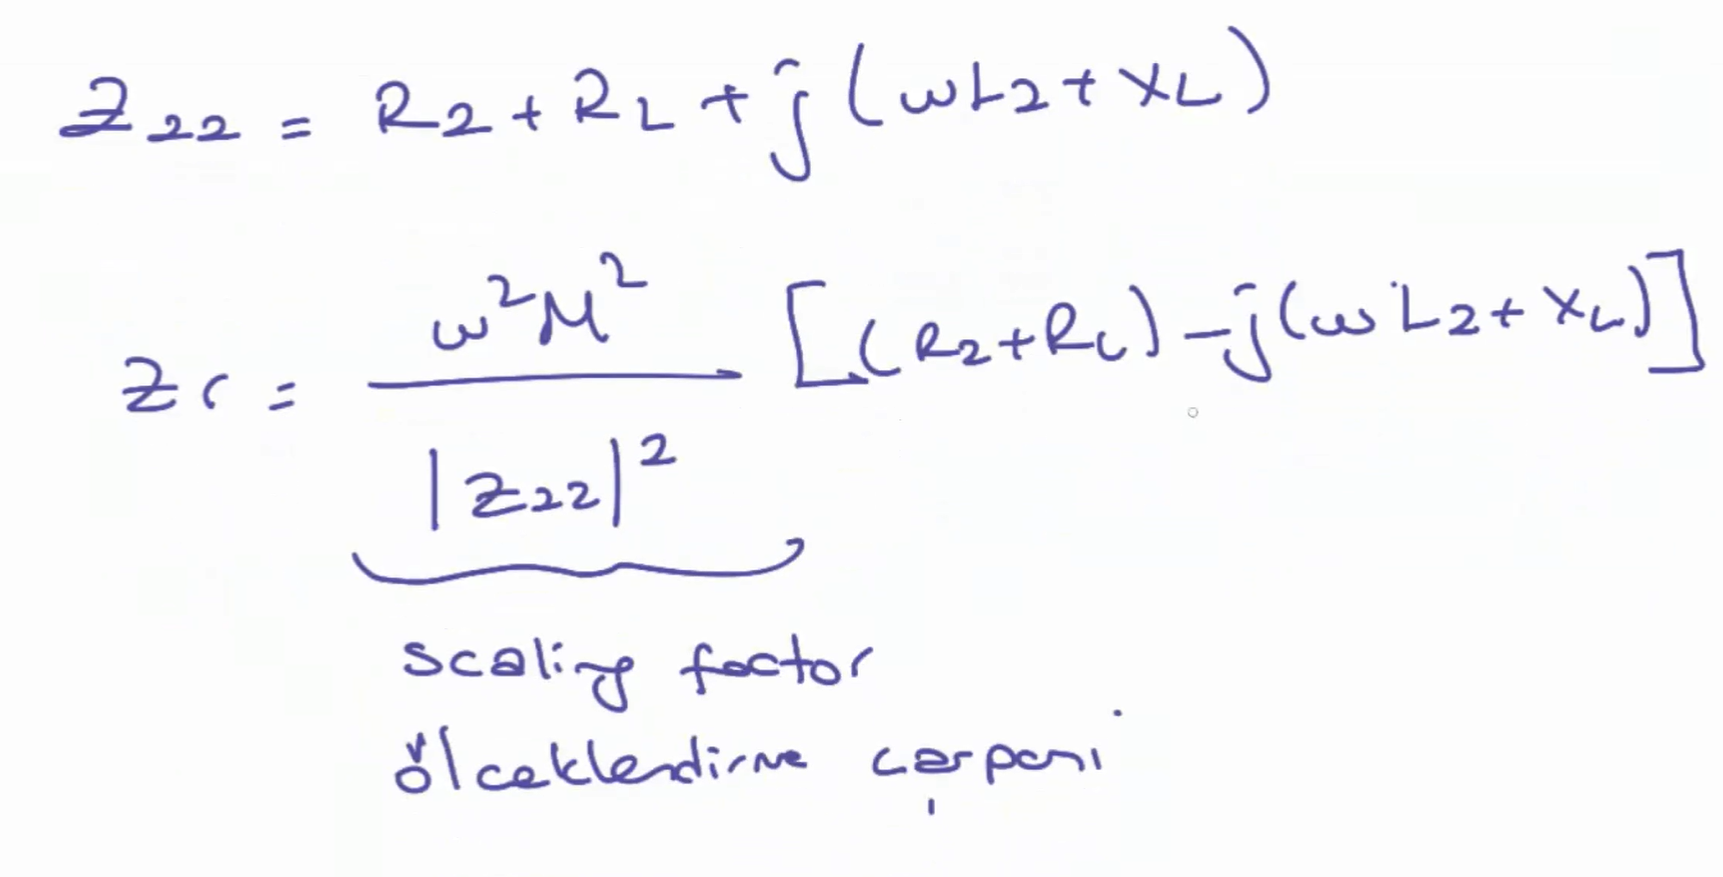 Z22 = R2 + RL + j(ωL2 + XL)
Zr = ω²M² / |Z22|² [(R2+RL) - j(ωL2 + XL)]
scaling factor
ölceklendirme çarpanı